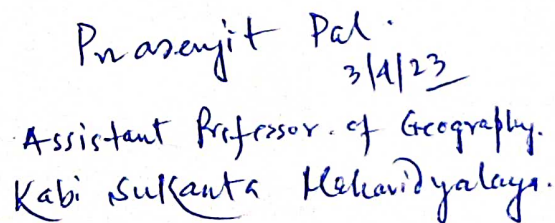 Prasenjit Pal.
3/4/23
Assistant Professor. of Geography.
Kabi Sukanta Mahavidyalaya.